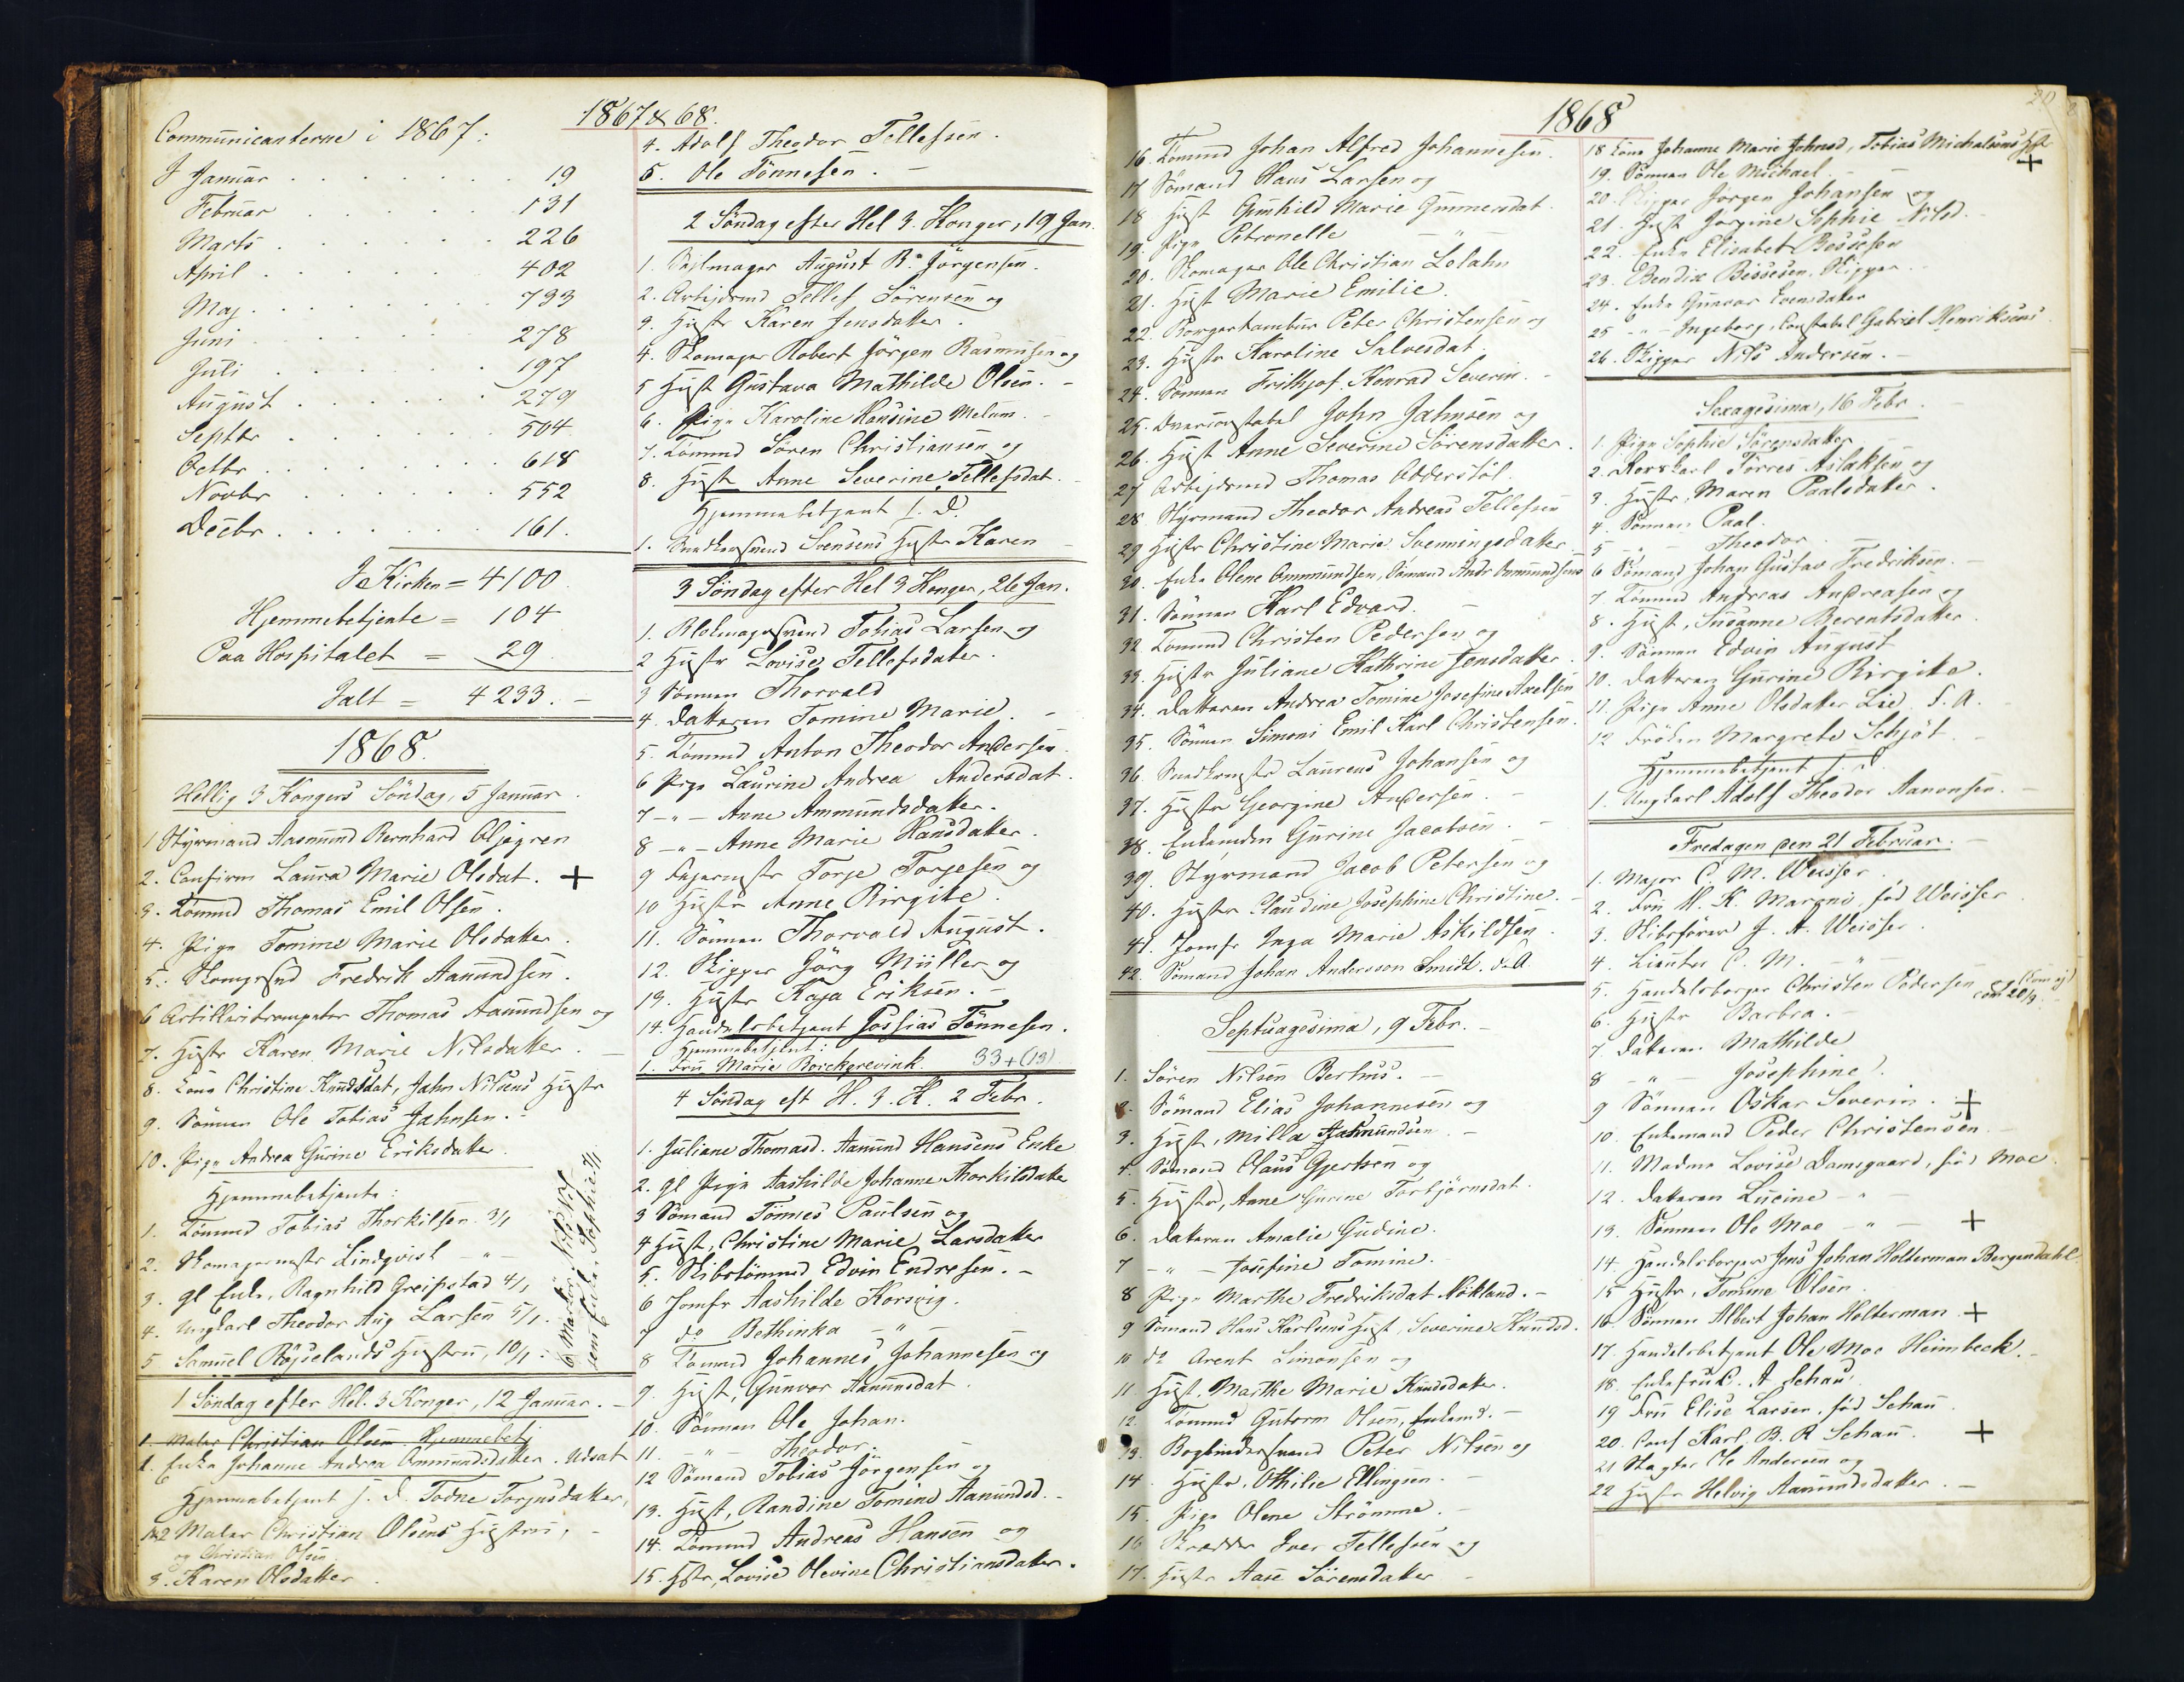 1867 & 68.
Communicanterne i 1867:
I Januar . . . . . . . . 19
Februar . . . . . 131
Marts . . . . . . . 226
April . . . . . . . 402
Maj . . . . . . . 733
Juni . . . . . . . 278
Juli . . . . . . 197
August . . . . . . 279
Septbr . . . . . . . 504
Octbr . . . . . . . . 618
Novbr . . . . . . . 552
Decbr . . . . . . . 161.
I Kirken = 4100
Hjemmebetjente = 104
Paa Hospitalet = 29
Ialt = 4233. –
1868.
Hellig 3 Kongers Söndag, 5 Januar.
1 Styrmand Aasmund Bernhard Oljegren
2. Confirm Laura Marie Olsdat. +
3. Tömmd Thomas Emil Olsen.
4. Pige Tomine Marie Olsdatter.
5. Skomgrsvd Fredrik Aanundsen.
6 Artilleritrompeter Thomas Aanundsen og
7. Hustr Karen Marie Nilsdatter.
8. Kone Christine Knudsdat, Jahn Nilsens Hustr
9. Sönnen Ole Tobias Jahnsen. –
10. Pige Andrea Gurine Eriksdatter.
Hjemmebetjente:
1. Tömmd Tobias Thorkilsen 3/1
2. Skomagermestr Lindqvist – " –
3. gl Enke, Ragnhild Greipstad 4/1
4. Ungkarl Theodor Aug Larsen 5/1.
5 Samuel Röjselands Hustru, 10/1.
1 Söndag efter Hel. 3 Konger, 12 Januar. –
1. Maler Christian Olsen Hjemmebetj
1. Enke Johanne Andrea Ommundsdatter. Udsat
Hjemmebetjent s. D. Todne Torjusdatter,
2 Maler Christian Olsens Hustru, –
og Christian Olsen
3. Karen Olsdatter
4. Adolf Theodor Tellefsen.
5. Ole Tönnesen. –
2 Söndag efter Hel 3. Konger, 19 Jan.
1. Sejlmager August B. Jörgensen.
2. Arbejdsmd Tellef Sörensen og
3. Hustr Karen Jensdatter.
4. Skomager Robert Jörgen Rasmusen og
5 Hust Gustava Mathilde Olsen. –
6. Pige Karoline Hansine Melum. –
7. Tömmd Sören Christiansen og
8. Hustr Anne Severine Tellefsdat. –
Hjemmebetjent s. D.
1. Snedkersvend Svensens Hustr Karen –
3 Söndag efter Hel 3 Konger, 26 Jan.
1. Blokmagersvend Tobias Larsen og
2 Hustr Lovise Tellefsdatter.
3 Sönnen Thorvald
4. Datteren Tomine Marie. –
5. Tömmd Anton Theodor Andersen.
6 Pige Laurine Andrea Andersdat.
7 – " – Anne Ammundsdatter.
8 – " – Anne Marie Hansdatter.
9 Fejermestr Torje Torjesen og
10 Hustr Anne Birgite.
11. Sönnen Thorvald August.
12. Skipper Görg Müller og
13. Hustr Kaja Eriksen. –
14. Handelsbetjent Jossias Tönnesen.
Hjemmebetjent:
1. Fru Marie Borchgrevink. 33 + (13)
4 Söndag eft H. 3. K. 2 Febr.
1. Juliane Thomasd. Aanund Hansens Enke
2. gl Pige Aashilde Johanne Thorkildsdatter
3 Sömand Tönnes Paulsen og
4 Hust, Christine Marie Larsdatter
5. Skibstömmd Edvin Endresen. –
6 Jomfr Aashilde Korsvig.
7 do Bethinka – " –
8 Tömmd Johannes Johannesen og
9. Hust, Gunvor Aanunsdat.
10. Sönnen Ole Johan.
11. – " – Theodor.
12 Sömand Tobias Jörgensen og
13. Hust, Randine Tomine Aanundsd. –
14. Tömmd Andreas Hansen og
15. Hstr, Lovise Olevine Christiansdatter.
1868
20
16. Tömmd Johan Alfred Johannesen.
17 Sömand Hans Larsen og
18 Hust Gunhild Marie Gunnersdat.
19. Pige Petronelle – " –
20. Skomager Ole Christian Lolahn
21. Hust Marie Emilie.
22. Borgertambur Peter Christensen og
23. Hustr Karoline Salvesdat.
24. Sönnen Frithjof Konrad Severin. –
25. Overconstabel John Jahnsen og
26. Hust Anne Severine Sörensdatter.
27 Arbejdsmd Thomas Odderstöl.
28. Styrmand Theodor Andreas Tellefsen
29 Hustr Christine Marie Svenningsdatter
30. Enke Olene Ommundsen, Sömand Andr Ommundsens
31. Sönnen Karl Edvard. –
32 Tömmd Christen Pedersen og
33. Hustr Juliane Kathrine Jensdatter.
34. Datteren Andrea Tomine Josefine Axelsen
35. Sönnen Simoni Emil Karl Christensen.
36. Snedkermstr Laurens Johansen og
37. Hustr Georgine Andersen. –
38. Enkemdm Gurine Jacobsen. –
39. Styrmand Jacob Petersen og
40. Hustr Claudine Josephine Christine. –
41. Jomfr Inga Marie Askildsen.
42. Sömand Johan Andersson Smidt. d. A.
Septuagesima, 9 Febr. –
1. Sören Nilsen Berhus. –
2. Sömand Elias Johannesen og
3. Hust, Milla Aasmundsen –
4. Sömand Olaus Gjertsen og
5. Hustr, Anne Gurine Torbjörnsdat.
6. Datteren Amalie Gudine.
7 – " – Josefine Tomine. –
8 Pige Marthe Fredriksdat Nökland. –
9 Sömand Hans Karlsens Hust, Severine Knudsd.
10 do Arent Simonsen og
11. Hust. Marthe Marie Knudsdatter.
12. Tömmd Gutorm Olsen, Enkemd. –
13. Bogbindersvend Peter Nilsen og
14. Hustr, Othilie Ellingsen. –
15. Pige Olene Strömme. –
16 Skrædder Iver Tellefsen og
17. Hustr Aase Sörensdatter –
18 Kone Johanne Marie Johnsd, Tobias Michalsens Hst
19. Sönnen Ole Michael – +
20. Skipper Jörgen Johansen og
21. Hust Jörgine Sophie Nilsd. –
22. Enke Elisabet Bossesen
23. Bendix Bessesen, Skipper. –
24. Enke Gunvor Evensdatter
25 – " – Ingeborg, Constabel Gabriel Henriksens
26. Skipper Nils Andersen. –
Sexagesima, 16 Febr. –
1. Pige Sophie Sörensdatter
2. Törres Aslaksen og
3. Hustr, Maren Paalsdatter.
4. Sönnen Paal.
5 – " – Theodor. –
6 Sömand Johan Gustav Fredriksen. –
7. Tömmd Andreas Andreasen og
8. Hust, Susanne Berentsdatter.
9. Sönnen Edvin August
10. Datteren Gurine Birgite.
11. Pige Anne Olsdatter Lie. S. A. –
12 Fröken Margrete Schjöt. –
Hjemmebetjent s. D.
1. Ungkarl Adolf Theodor Aanonsen. –
Fredagen den 21 Februar. –
1. Major C. M. Weisser.
2. Fru M. K. Marcno, föd Weisser
3. Skibsförer J. A. Weisser.
4. Lieutn C. M. – " –
5. Handelsborger Christen Pedersen
6. Hustr Barbra. –
7 Datteren Mathilde
8 – " – Josephine.
9 Sönnen Oskar Severin. +
10. Enkemand Peder Christensen –
11. Madme Lovise Damsgaard, föd Moe.
12. Datteren Lucine – " –
13. Sönnen Ole Moe – " – +
14. Handelsborger Jens Johan Holterman Bergendahl.
15 Hustr, Tomine Olsen
16 Sönnen Albert Johan Holterman +
17. Handelsbetjent Ole Moe Heimbeck. –
18. Enkefru C. A. Schau.
19 Fru Elise Larsen, föd Schau.
20. Conf Karl B. R Schau. +
21 Slagter Ole Andersen og
22 Hustr Helvig Aanundsdatter. –